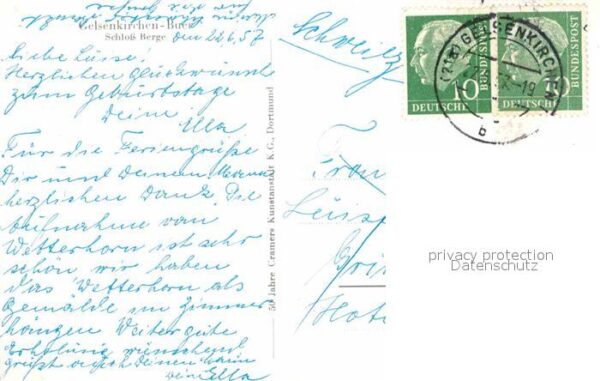 Gelsenkirchen-Buer
Schloß Berge
den 22.6.57
Liebe Lüsse.
Herzlichen Glückwunsch
zum Geburtstage
Deine
Ella
Für die Feriengrüße
Dir und Deinem
herzlichen Dank. Die
Aufnahme vom
Wetterhorn ist sehr
schön wir haben
das Wetterhorn als
Gemälde im Zimmer
hängen Weiter gute
Erholung wünschend
grüßt euch
Ella
50 Jahre Cramers Kunstanstalt K.G., Dortmund
Schweiz
Frau
10
DEUTSCHE
BUNDESPOST
DEUTSCHE
BUNDESPOST
(21a) GELSENKIRCHEN
b
privacy protection
Datenschutz